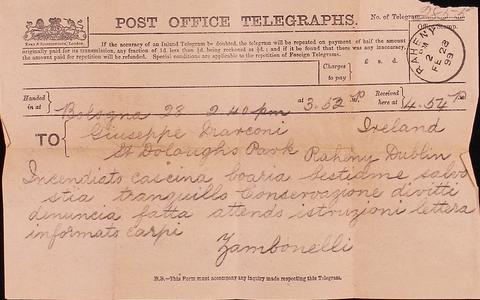 POST OFFICE TELEGRAPHS.
No. of Telegram
If the accuracy of an Inland Telegram be doubted, the telegram will be repeated on payment of half the amount
originally paid for its transmission, any fraction of 1d. less than ½d. being reckoned as ½d.; and if it be found that there was any inaccuracy,
the amount paid for repetition will be refunded. Special conditions are applicable to the repetition of Foreign Telegrams.
RAHENY
PM
2
FE 28
99
Charges
to pay
£ s. d.
Handed
in at
Bologna 28 2 40 pm at 3.52 P. Received
here at
4.54 P.
TO
Giuseppe Marconi Ireland
St Doloughs Park Raheny Dublin
Incendiato cascina boaria bestiame salvo
stia tranquillo Conservazione divitti
denuncia fatta attendo istruzioni lettera
informato carpi
Zambonelli
N.B.—This Form must accompany any inquiry made respecting this Telegram.